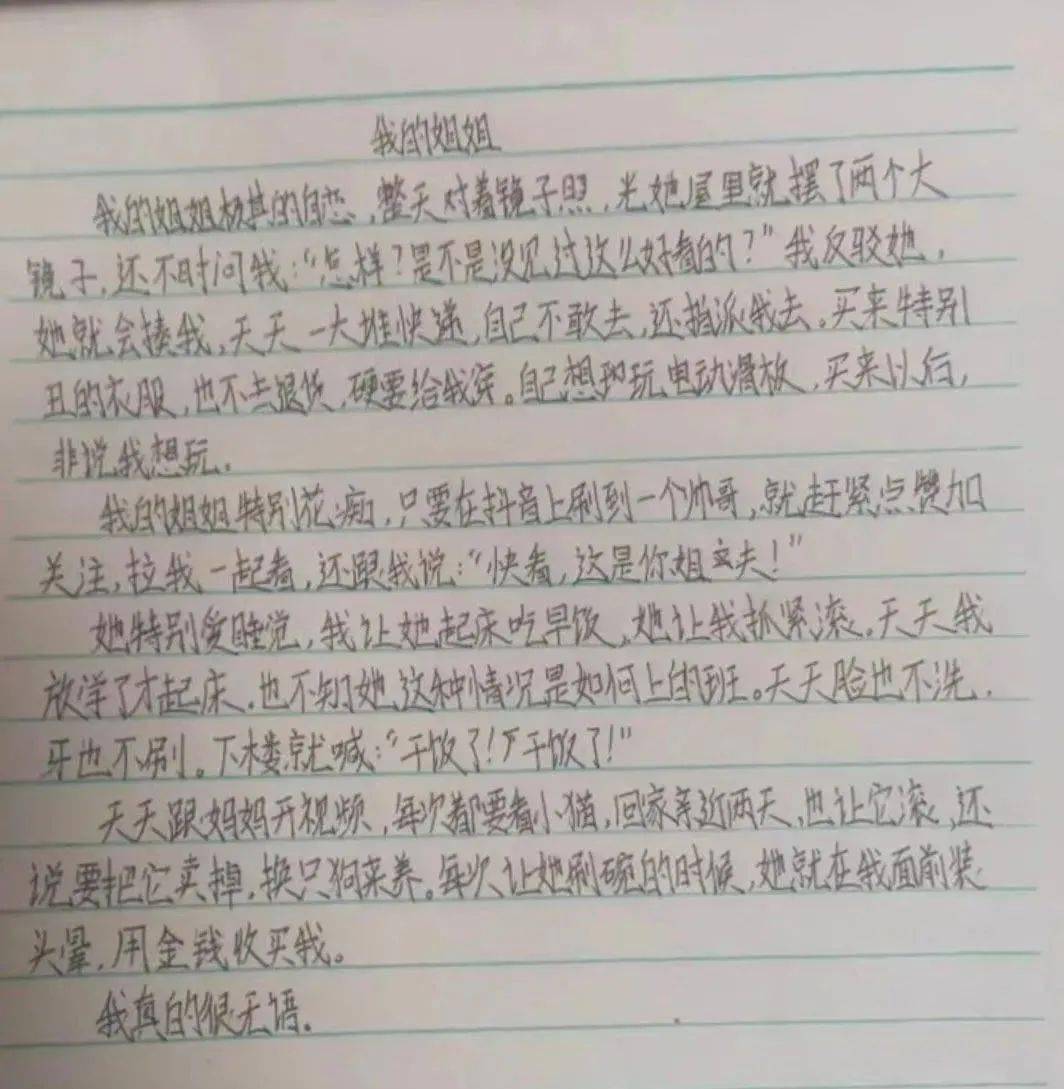 我的姐姐
我的姐姐极其的自恋,整天对着镜子照,光她屋里就摆了两个大
镜子,还不时问我:“怎样?是不是没见过这么好看的?”我反驳她,
她就会揍我,天天一大堆快递,自己不敢去,还指派我去。买来特别
丑的衣服,也不去退货,硬要给我穿。自己想玩电动滑板,买来以后,
非说我想玩。
我的姐姐特别花痴,只要在抖音上刷到一个帅哥,就赶紧点赞加
关注,拉我一起看,还跟我说:“快看,这是你姐夫!”
她特别爱睡觉,我让她起床吃早饭,她让我抓紧滚。天天我
放学了才起床。也不知她这种情况是如何上的班。天天脸也不洗,
牙也不刷。下楼就喊:“干饭了!干饭了!”
天天跟妈妈开视频,每次都要看小猫,回家亲近两天,也让它滚,还
说要把它卖掉,换只狗来养。每次让她刷碗的时候,她就在我面前装
头晕,用金钱收买我。
我真的很无语。